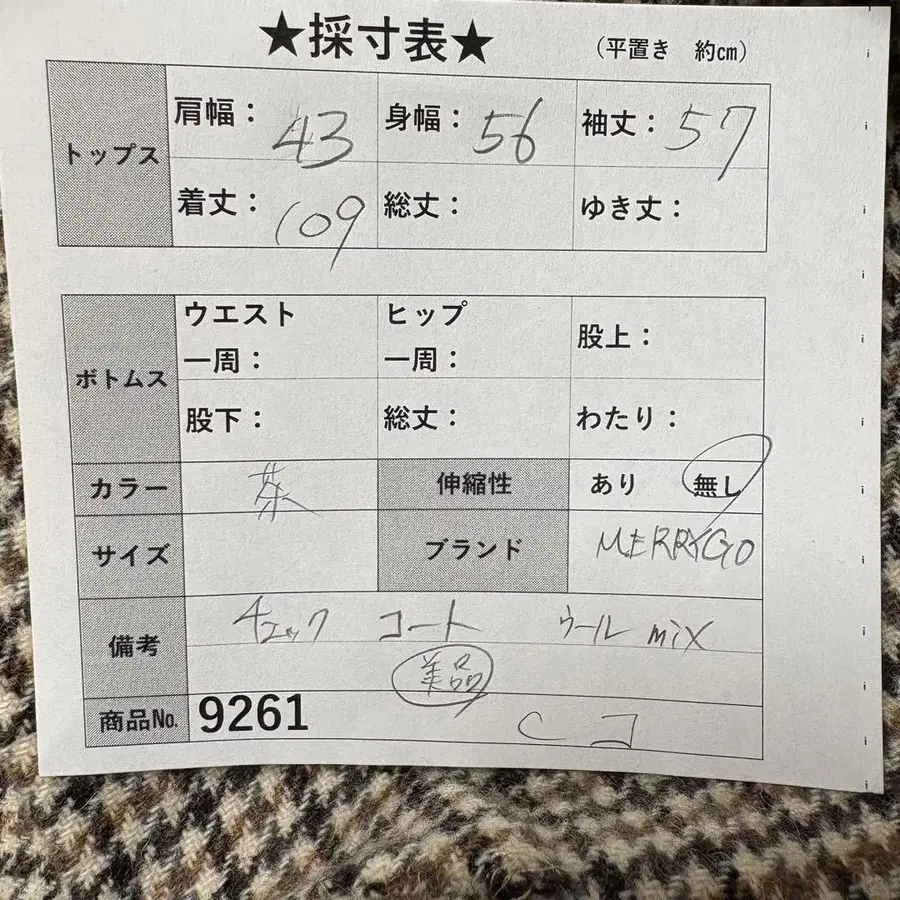 ★採寸表★ （平置き 約㎝）
トップス 肩幅： 43 身幅： 56 袖丈： 57
着丈： 109 総丈： ゆき丈：
ボトムス ウエスト一周： ヒップ一周： 股上：
股下： 総丈： わたり：
カラー 茶 伸縮性 あり 無し
サイズ ブランド MERRYGO
備考 チェック コート ウール mix
美品
商品No. 9261 C コ